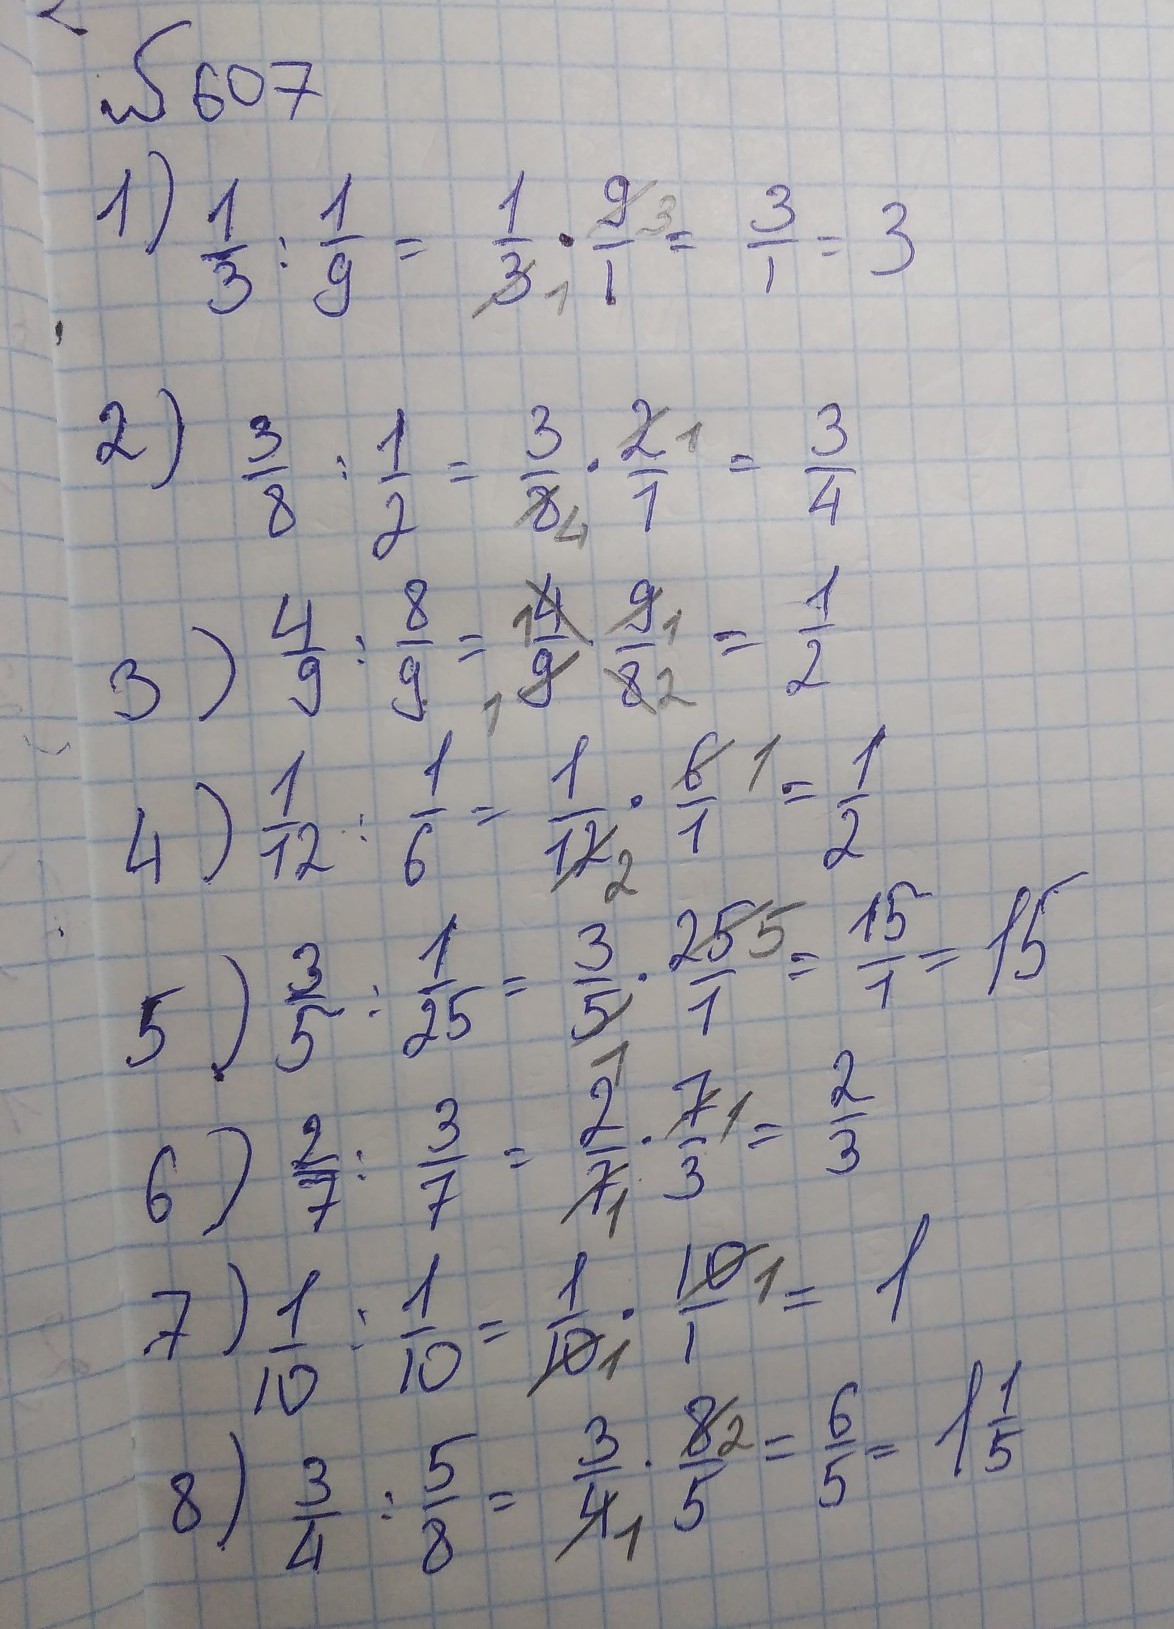 №607
1) 1/3 : 1/9 = 1/3 1 · 9/1 3 = 3/1 = 3
2) 3/8 : 1/2 = 3/8 4 · 2/1 1 = 3/4
3) 4/9 : 8/9 = 1 4/9 1 9/8 1 2 = 1/2
4) 1/12 : 1/6 = 1/12 2 · 6/1 1 = 1/2
5) 3/5 : 1/25 = 3/5 1 · 25/1 5 = 15/1 = 15
6) 2/7 : 3/7 = 2/7 1 · 7/3 1 = 2/3
7) 1/10 : 1/10 = 1/10 1 · 10/1 1 = 1
8) 3/4 : 5/8 = 3/4 1 · 8/5 2 = 6/5 = 1 1/5